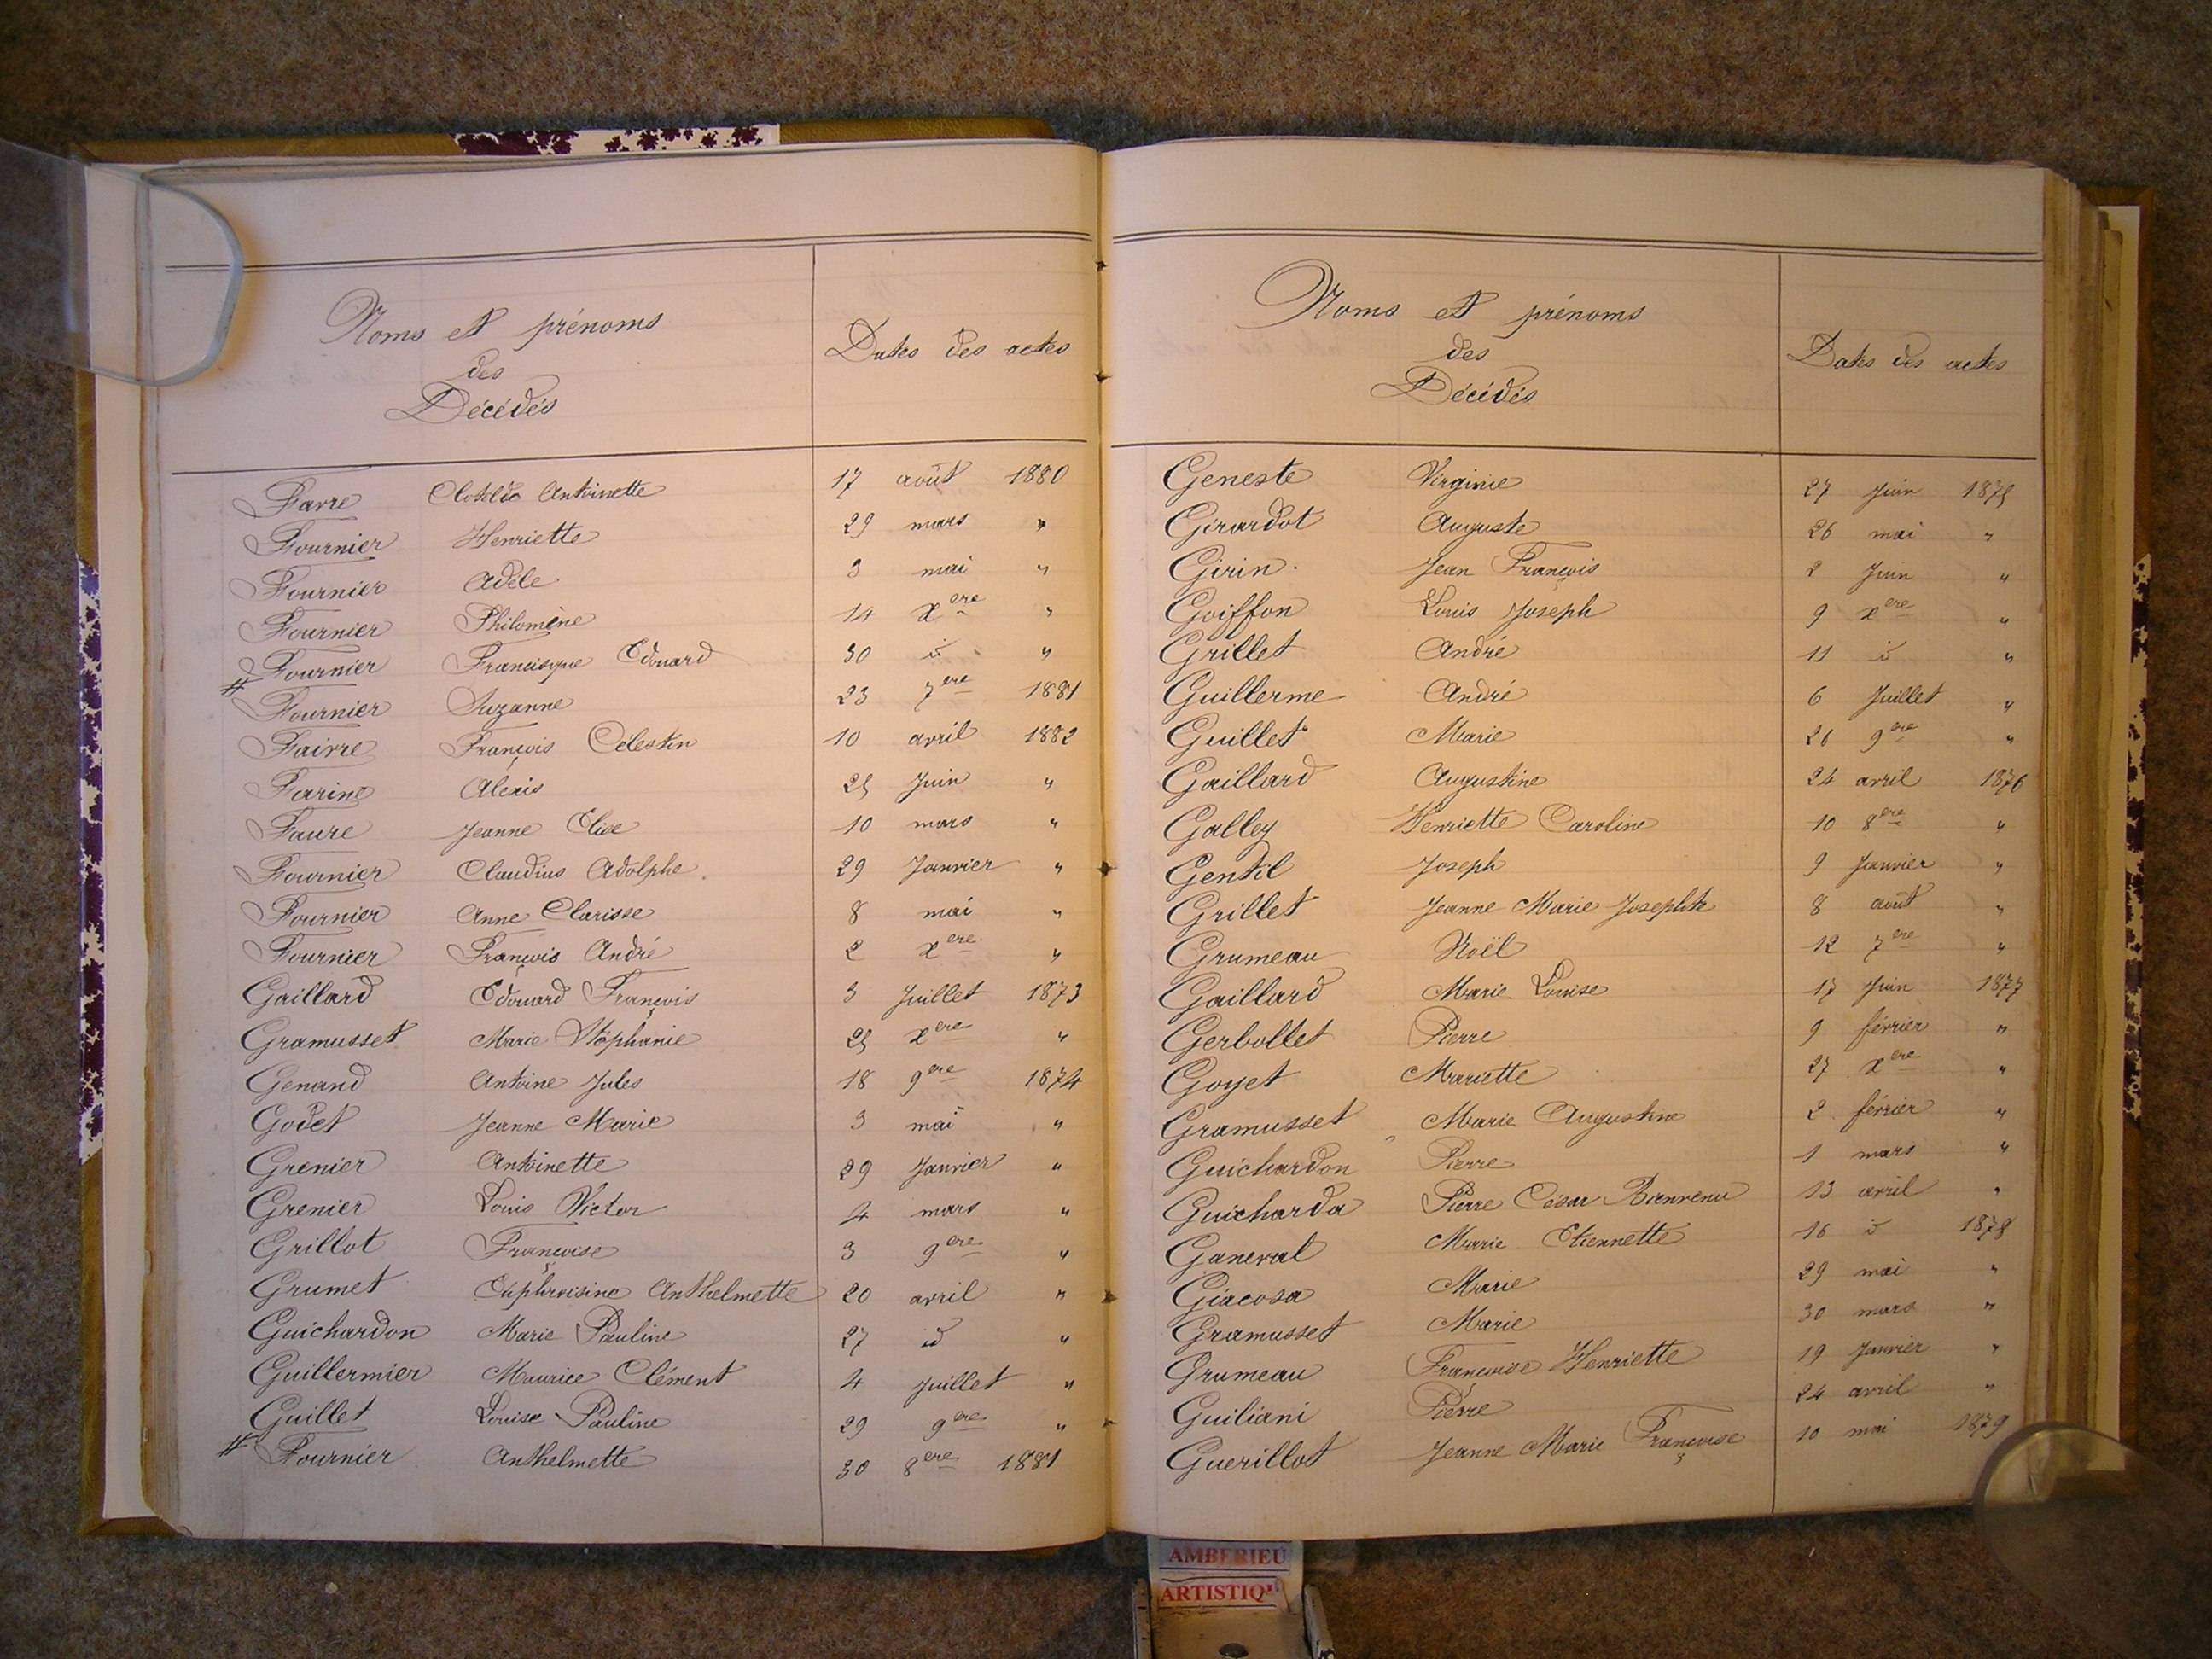 Noms et prénoms
des
Décédés
Dates des actes
Favre Clotilde Antoinette 17 août 1880
Fournier Henriette 29 mars "
Fournier Adèle 3 mai "
Fournier Philomène 14 Xere "
Fournier Francisque Edouard 30 id "
# Fournier Suzanne 23 7ere 1881
Faivre François Célestin 10 avril 1882
Farine Alexis 25 Juin "
Faure Jeanne Elise 10 mars "
Fournier Claudius Adolphe 29 Janvier "
Fournier Anne Clarisse 8 mai "
Fournier François André 2 Xere "
Gaillard Edouard François 3 Juillet 1873
Gramusset Marie Stéphanie 25 Xere "
Genand Antoine Jules 18 9ere 1874
Godet Jeanne Marie 3 mai "
Grenier Antoinette 29 Janvier "
Grenier Louis Victor 4 mars "
Grillot Françoise 3 9ere "
Grumet Euphroisine Anthelmette 20 avril "
Guichardon Marie Pauline 27 id "
Guillermier Maurice Clément 4 Juillet "
Guillet Louise Pauline 29 9ere "
# Fournier Anthelmette 30 8ere 1881
Noms et prénoms
des
Décédés
Dates des actes
Geneste Virginie 27 Juin 1875
Girardot Auguste 26 mai "
Girin Jean François 2 Juin "
Goiffon Louis Joseph 9 Xere "
Grillet André 11 id "
Guillerme André 6 Juillet "
Guillet Marie 26 9ere "
Gaillard Augustine 24 avril 1876
Galley Henriette Caroline 10 8ere "
Gentil Joseph 9 Janvier "
Grillet Jeanne Marie Josephte 8 août "
Grumeau Noël 12 7ere "
Gaillard Marie Louise 17 Juin 1877
Gerbollet Pierre 9 février "
Goyet Mariette 27 Xere "
Gramusset Marie Augustine 2 février "
Guichardon Pierre 1 mars "
Guicharda Pierre César Bienvenu 13 avril "
Ganeval Marie Etiennette 16 id 1878
Giacosa Marie 29 mai "
Gramusset Marie 30 mars "
Grumeau Françoise Henriette 19 Janvier "
Guiliani Pierre 24 avril "
Guerillot Jeanne Marie Françoise 10 mai 1879
AMBERIEU
ARTISTIQ